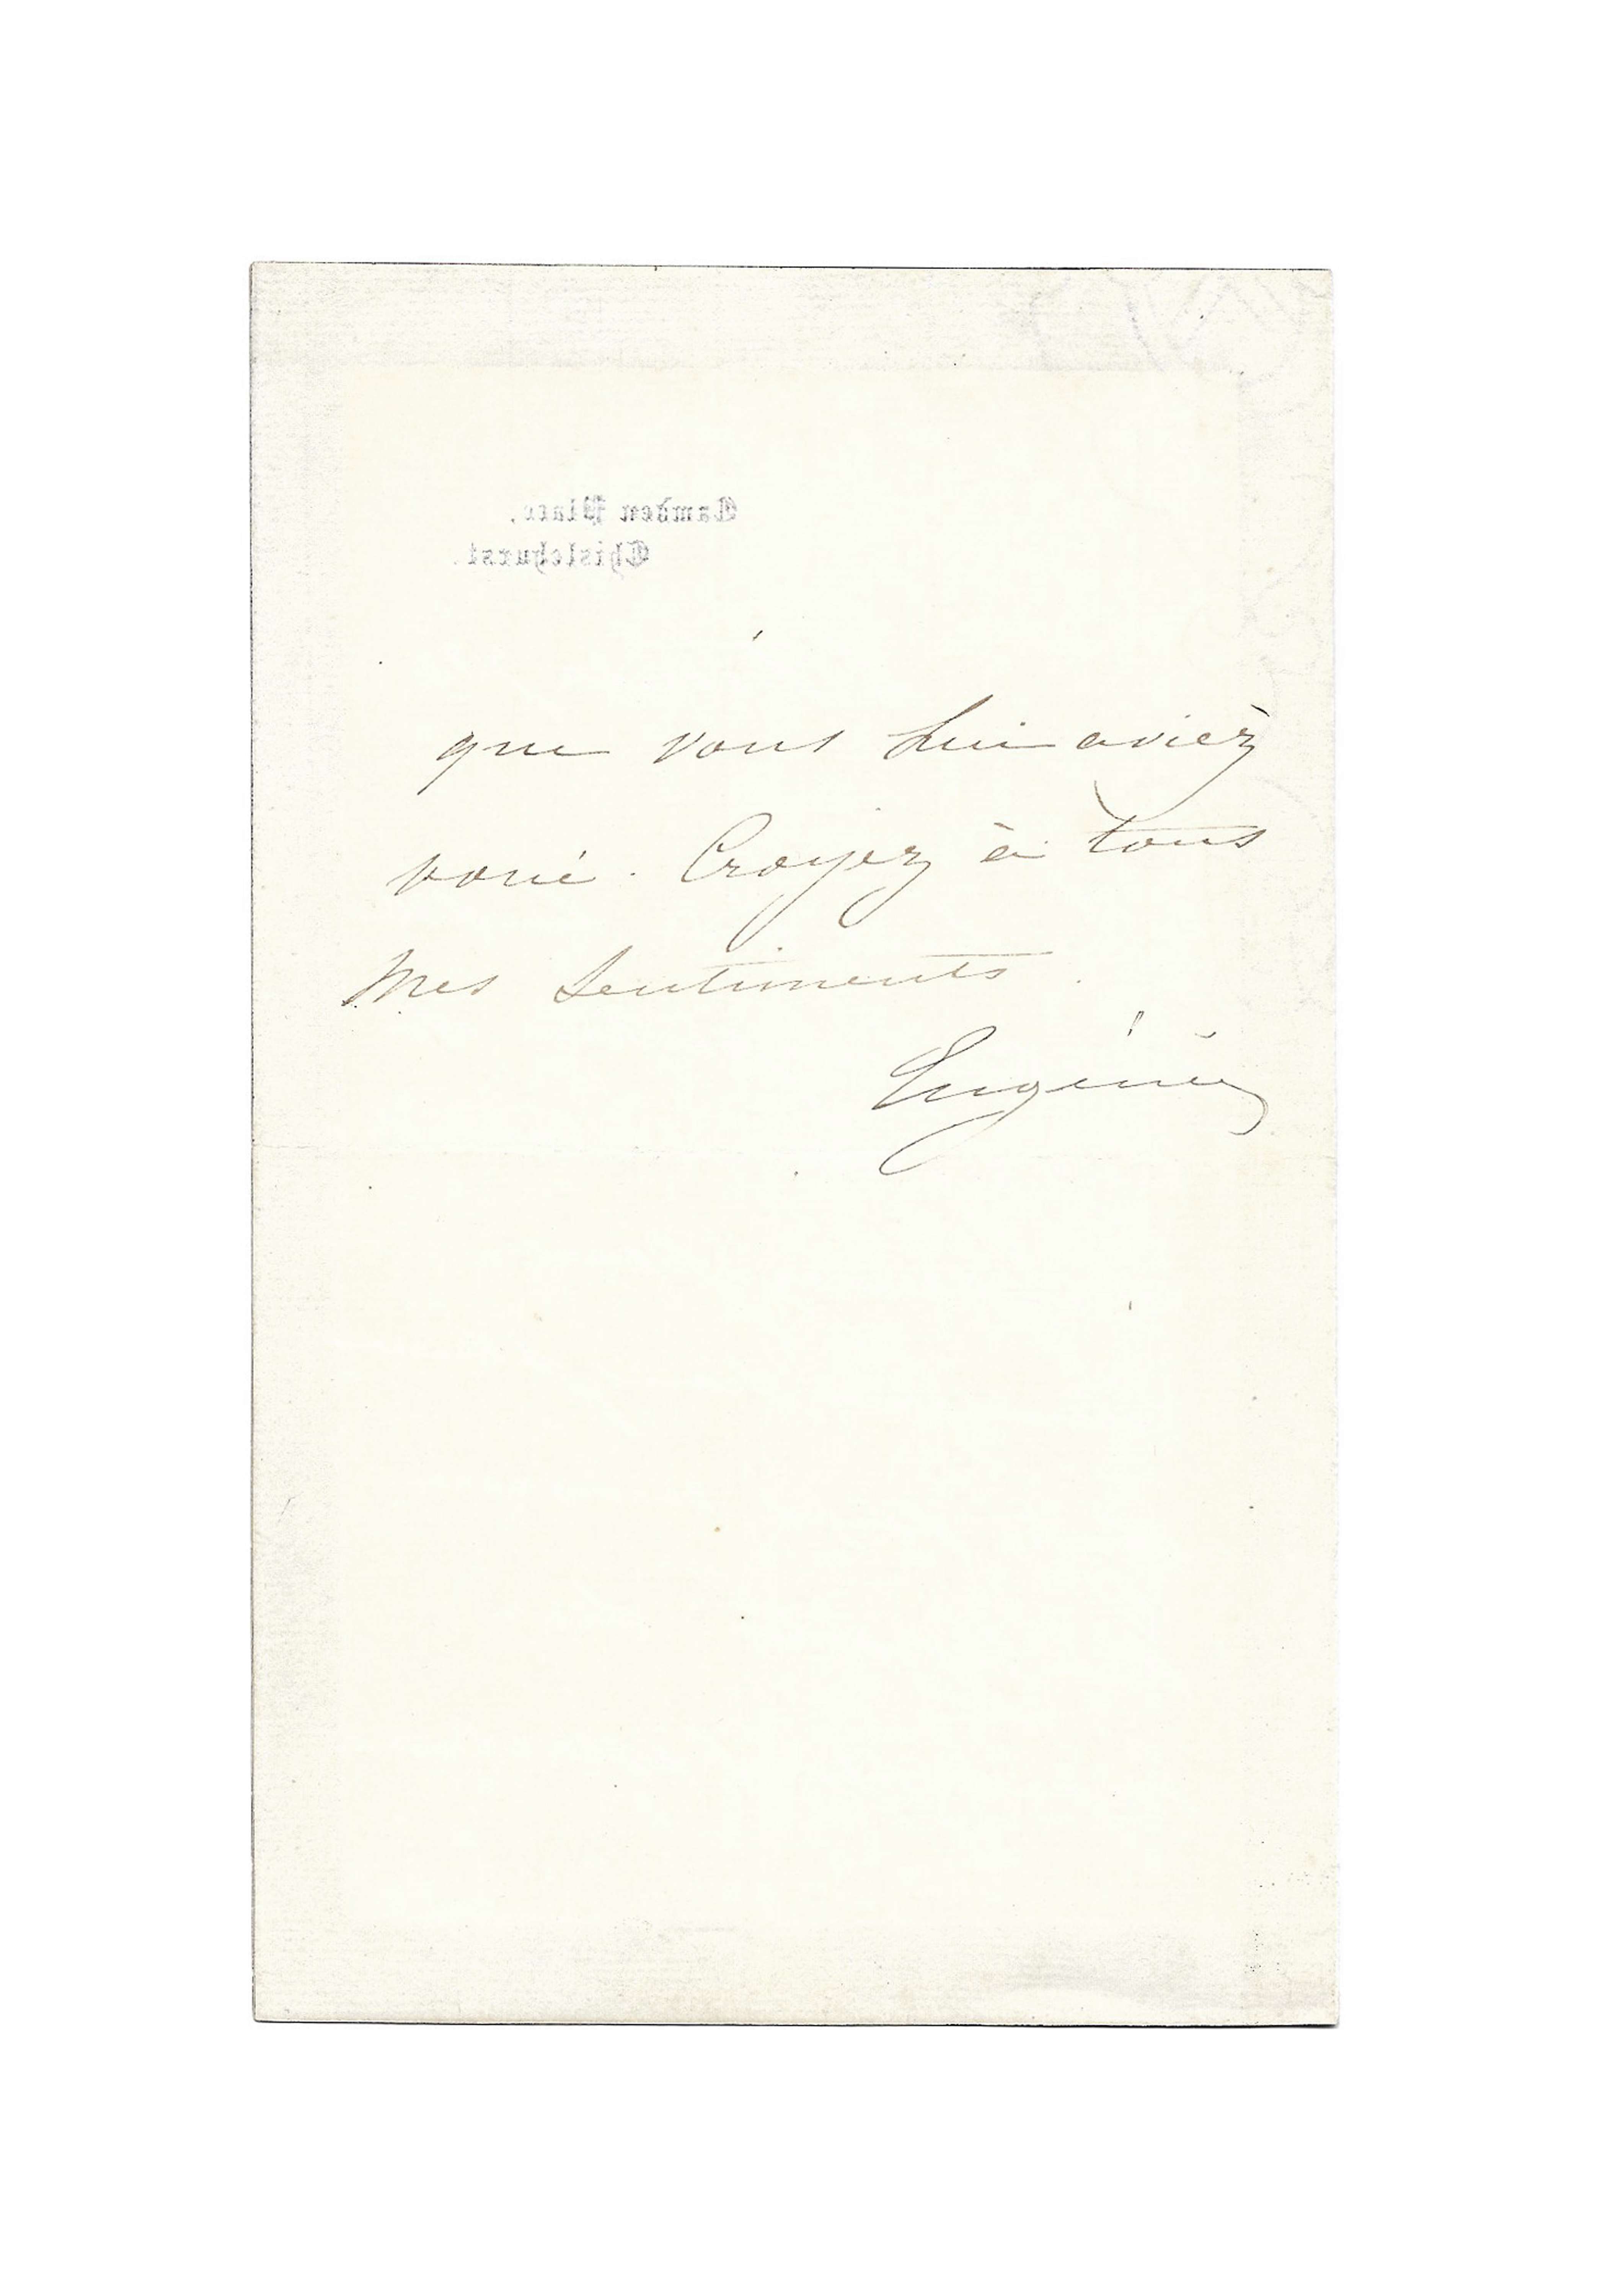 Camden Place,
Chislehurst.
que vous lui aviez
voué. Croyez à tous
Mes Sentiments.
Eugénie